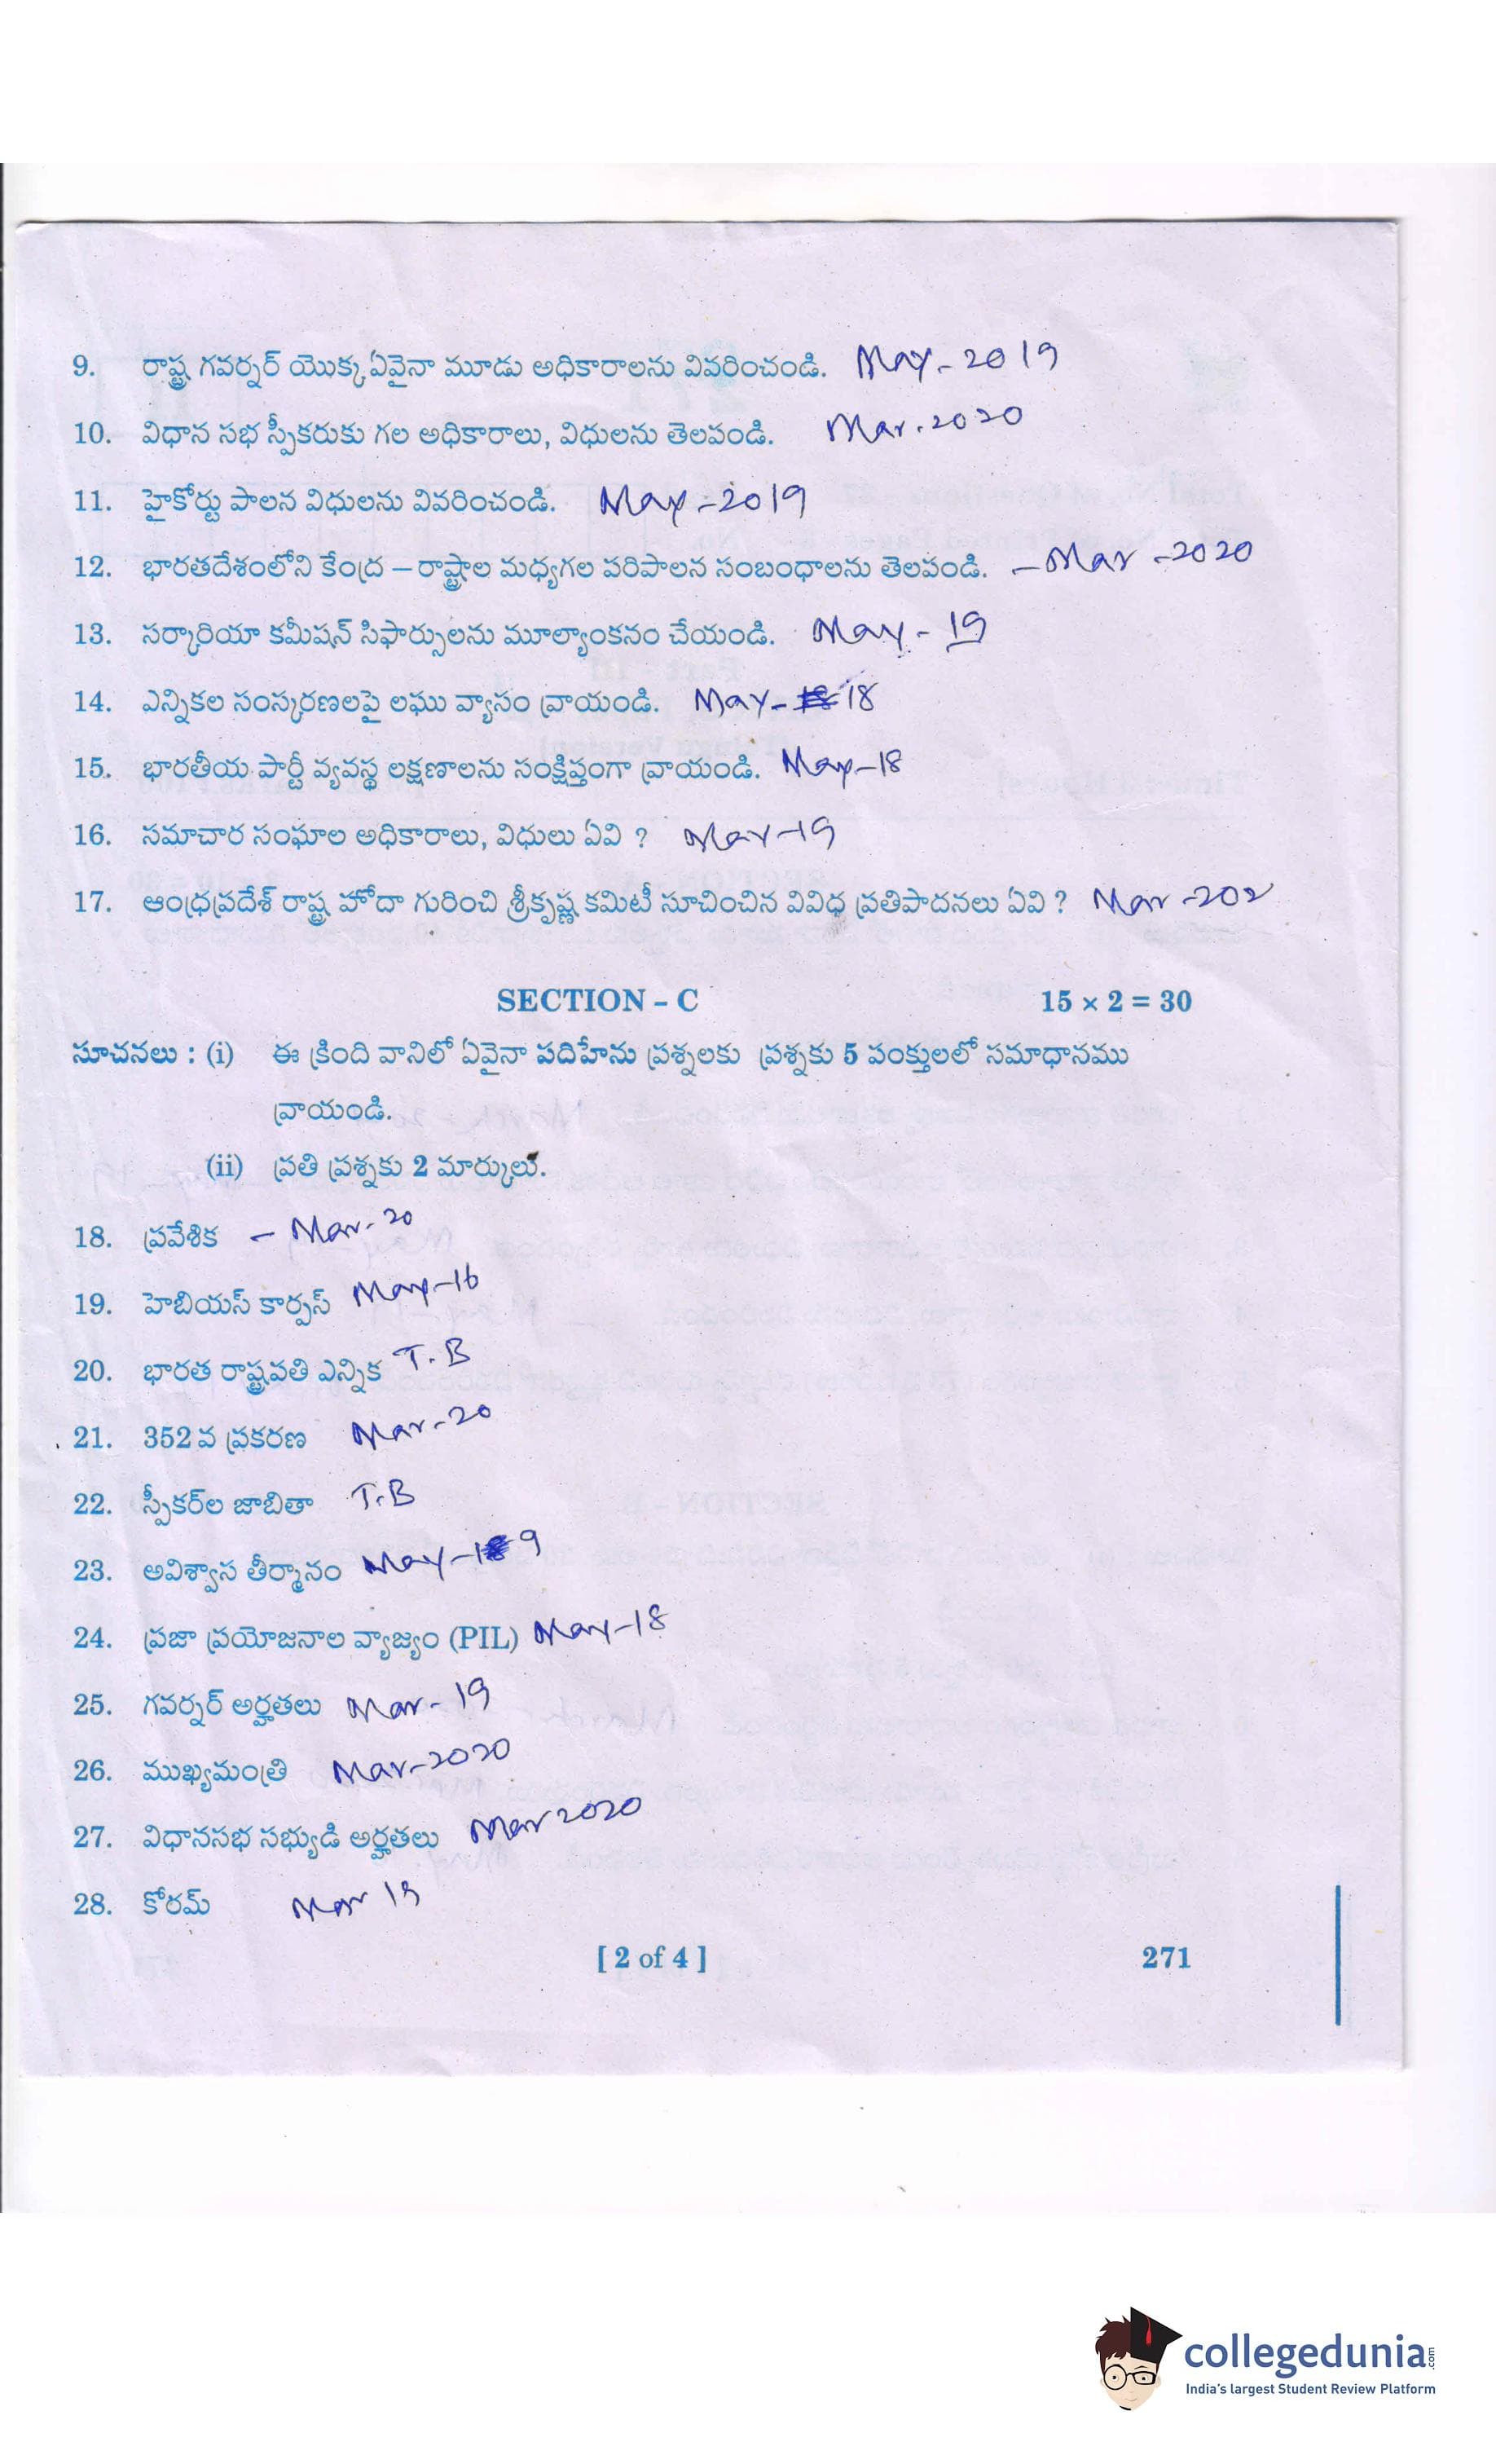 9. రాష్ట్ర గవర్నర్ యొక్క ఏవైనా మూడు అధికారాలను వివరించండి. May - 2019
10. విధాన సభ స్పీకరుకు గల అధికారాలు, విధులను తెలపండి. Mar. 2020
11. హైకోర్టు పాలన విధులను వివరించండి. May - 2019
12. భారతదేశంలోని కేంద్ర – రాష్ట్రాల మధ్యగల పరిపాలన సంబంధాలను తెలపండి. – Mar - 2020
13. సర్కారియా కమీషన్ సిఫార్సులను మూల్యాంకనం చేయండి. May - 19
14. ఎన్నికల సంస్కరణలపై లఘు వ్యాసం వ్రాయండి. May - 18
15. భారతీయ పార్టీ వ్యవస్థ లక్షణాలను సంక్షిప్తంగా వ్రాయండి. May-18
16. సమాచార సంఘాల అధికారాలు, విధులు ఏవి ? May-19
17. ఆంధ్రప్రదేశ్ రాష్ట్ర హోదా గురించి శ్రీకృష్ణ కమిటీ సూచించిన వివిధ ప్రతిపాదనలు ఏవి ? Mar -202
SECTION – C 15 × 2 = 30
సూచనలు : (i) ఈ క్రింది వానిలో ఏవైనా పదిహేను ప్రశ్నలకు ప్రశ్నకు 5 పంక్తులలో సమాధానము
వ్రాయండి.
(ii) ప్రతి ప్రశ్నకు 2 మార్కులు.
18. ప్రవేశిక – Mar - 20
19. హెబియస్ కార్పస్ May-16
20. భారత రాష్ట్రపతి ఎన్నిక T.B
21. 352 వ ప్రకరణ Mar-20
22. స్పీకర్‌ల జాబితా T.B
23. అవిశ్వాస తీర్మానం May-19
24. ప్రజా ప్రయోజనాల వ్యాజ్యం (PIL) May-18
25. గవర్నర్ అర్హతలు Mar - 19
26. ముఖ్యమంత్రి Mar-2020
27. విధానసభ సభ్యుడి అర్హతలు Mar 2020
28. కోరమ్ Mar
[ 2 of 4 ] 271
collegedunia.com
India's largest Student Review Platform